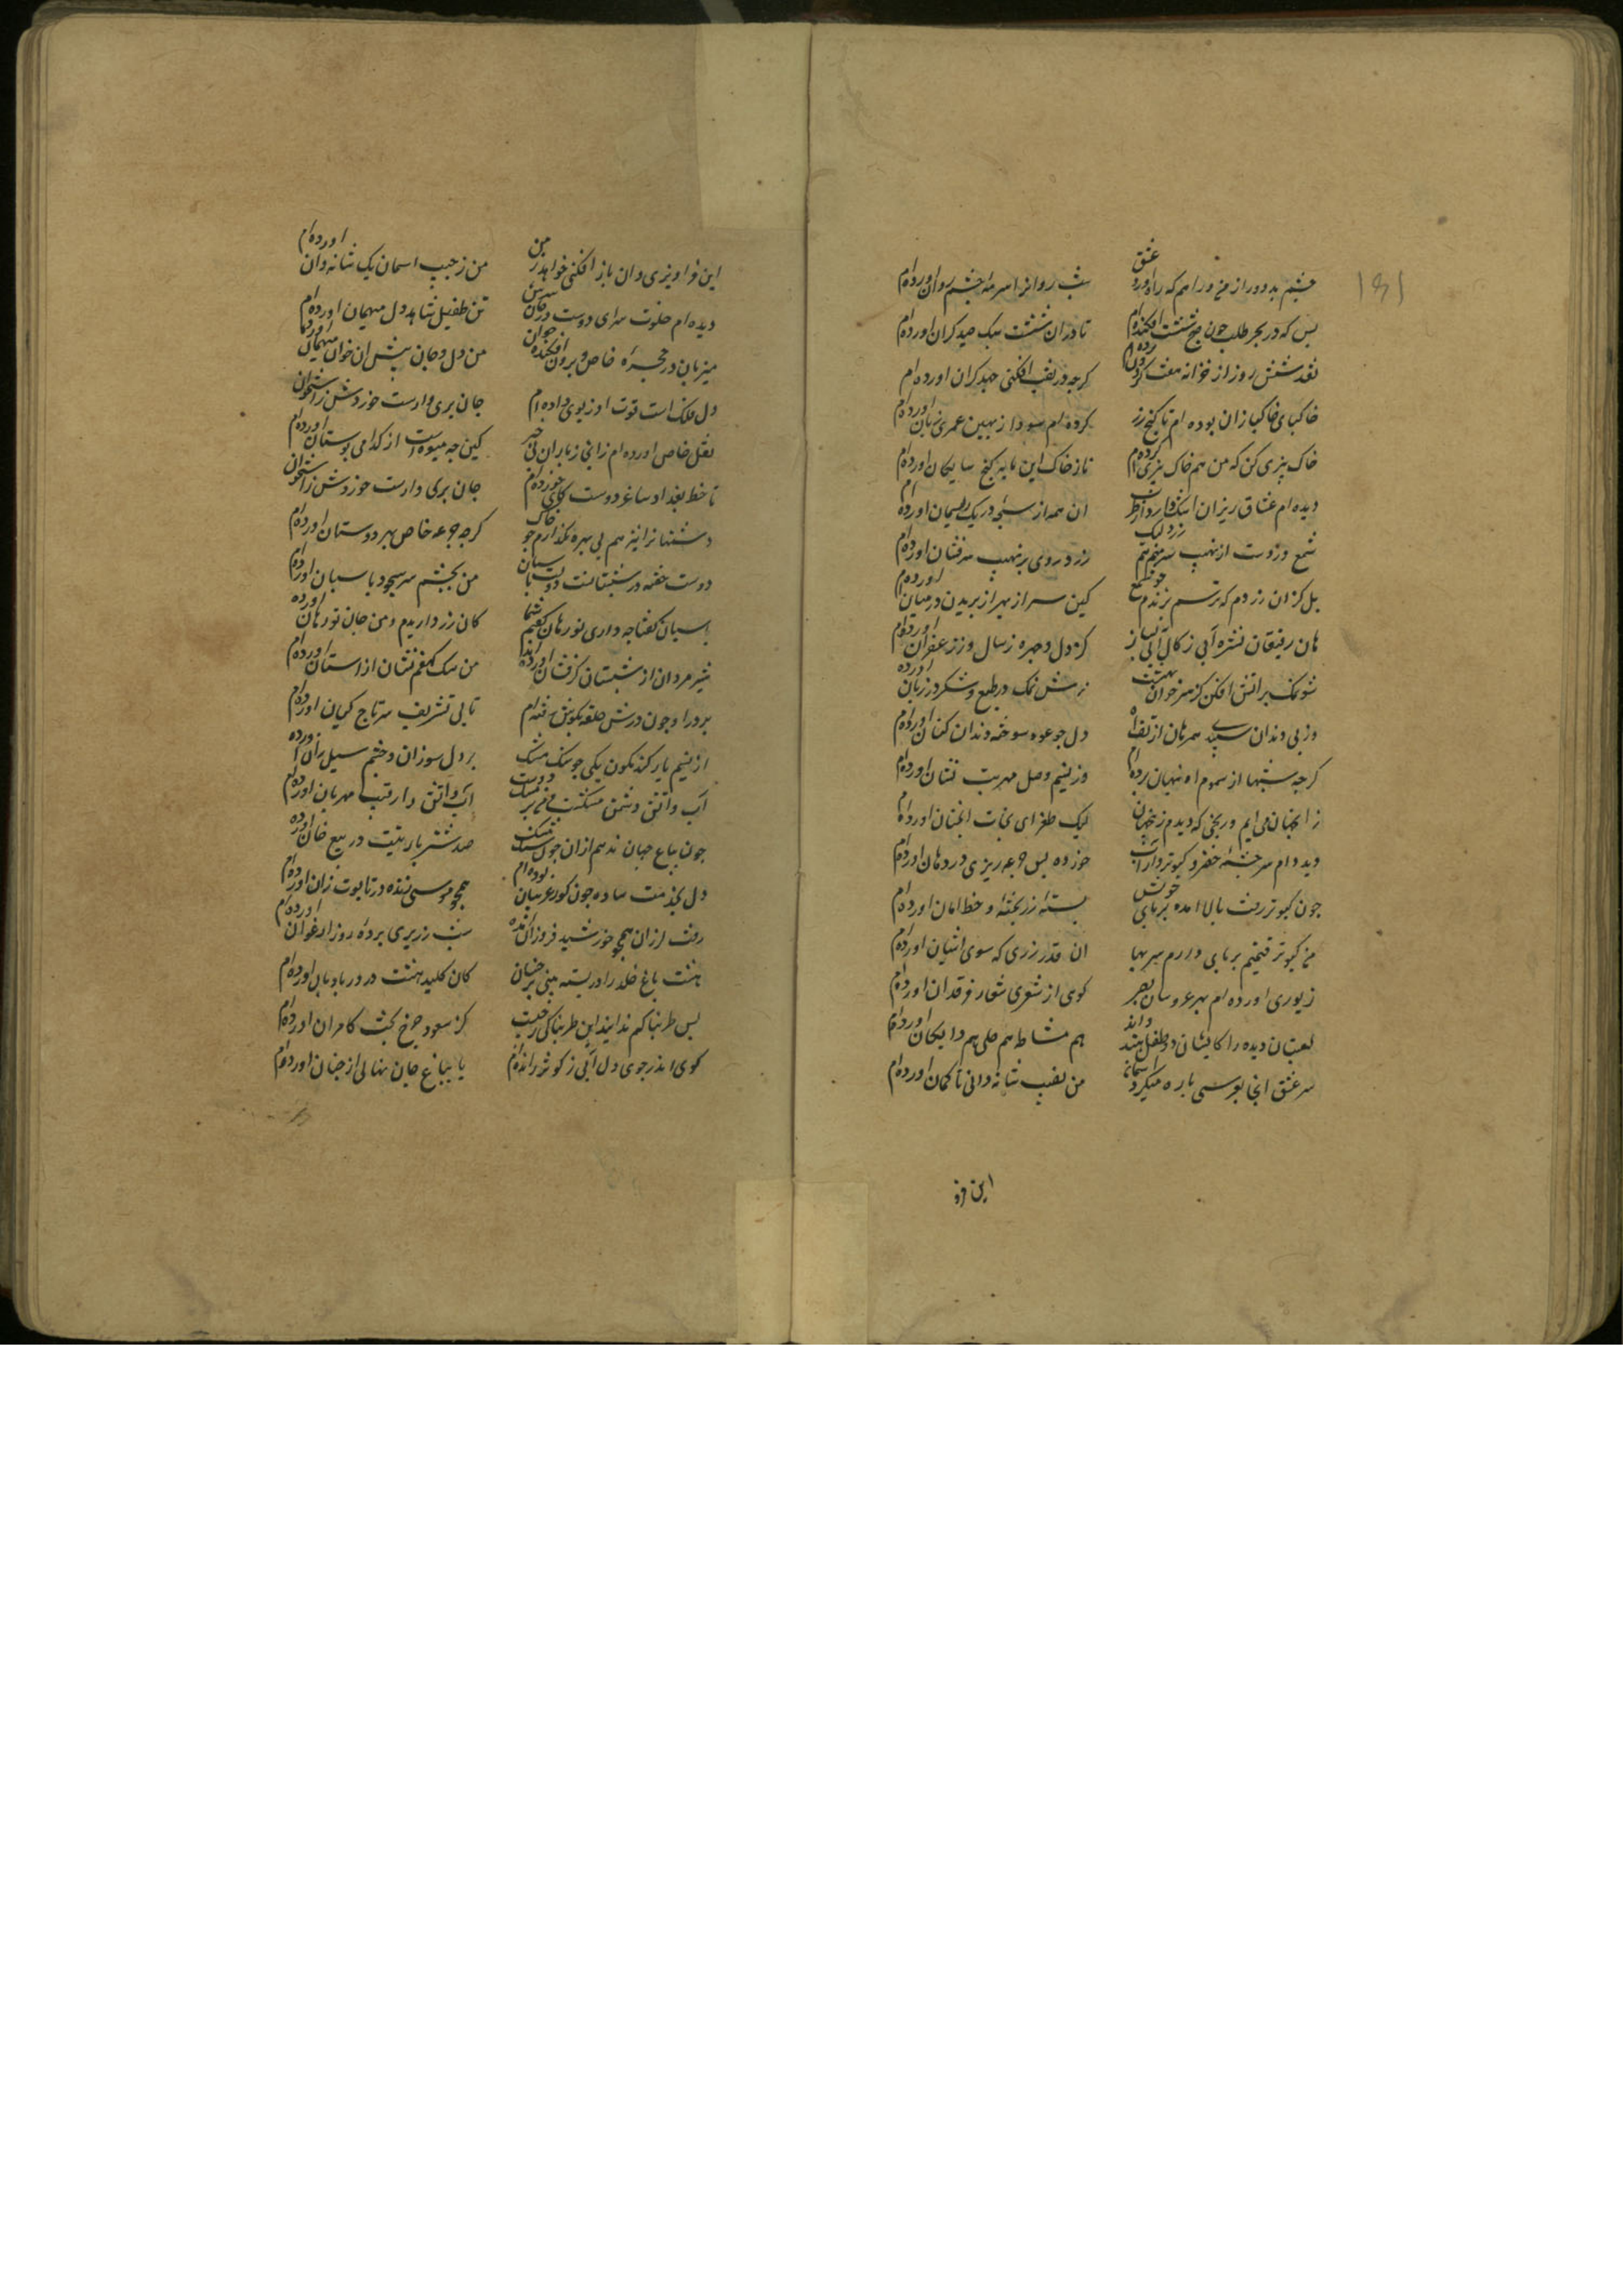 ۱۵۱
چشم بد دور از من و راهم که راه آورد عشق شب روان را سرمهٔ چشم روان آورده‌ام
بس که در بحر طلب چون صبح شست افکنده‌ام تا در آن شست سبک صید گران آورده‌ام
نقد شش روز از خزانه هفت گردون برده‌ام کرچه در نقب افکنی جهد کران اورده‌ام
خاکپای خاکبازان بوده‌ام تا کنج زر کرده‌ام سود از بهین عمری زیان اورده‌ام
خاک بیزی کن که من هم خاک بیزی کرده‌ام تا ز خاک این مایه کنج شایکان اورده‌ام
دیده‌ام عشاق ریزان اشک ان همه از سبحه در یک ریسمان اورده‌ام
شمع وزوست از نهیب سر زرد روی بر نهیب سرفشان اورده‌ام
بل کزان زردم که ترسم برندم کین سر از بهر از بریدن درمیان اورده‌ام
هان رفیقان نشره آبی زکال آبی بساز کز دل و چهره زسال وز زعفران اورده‌ام
شو نمک بر اتش افکن کز سر خوان بهشت نمک در طبع و شکر در زبان اورده
وز بی دندان سپید همرهان از تف اه دل جو عود سوخته دندان کنان اورده‌ام
کرچه شبها از سموم اه تبها برده‌ام وز نسیم وصل مهر تب نشان اورده‌ام
زانجهان می‌ایم و رنجی که دیدم زجهان لیک طغرای نجات انجهان اورده‌ام
دیده‌ام سرچشمهٔ خضر و کبوتروار آب خورده بس جرعه ریزی در دهان اورده‌ام
چون کبوتر رفته بالا امده بر پای خویش بسته زر تحفه و خط امان اورده‌ام
من کبوتر قیمتم بر پای دارم سر بها ان قدر زری که سوی اشیان اورده‌ام
زیوری اورده‌ام بهر عروسان بصر کوی از شعری شعار فرقدان اورده‌ام
لعبتان دیده را کایشان دو طفل هندواند هم مشاطه هم حلی هم دایکان اورده‌ام
سر عشق انجا ببوسی پاره میکرد اسمان من بنقب شانه دانی تا کمان اورده‌ام
این فرو
این فراویزی وان باز افکنی خواهد ز من من زجیب اسمان یک شانه دان اورده‌ام
دیده‌ام خلوت سرای دوست در مهمان سرش تن طفیل شاهد دل میهمان اورده‌ام
میزبان در حجرهٔ خاص و برون افکنده خوان من دل و جان پیش ان خوان میهمان اورده‌ام
دل ملک است قوت او زبوی داده‌ام جان بری وارست خوردش زاستخوان
نقل خاص اورده‌ام زانجا زیاران بی خبر کین چه میوه است از کدامی بوستان اورده‌ام
تا خط بغداد ساغر دوستکانی خورده‌ام جان بری وارست خوردش زاستخوان
دشمنان را نیز هم بی بهره نکذارم چو خاک کرچه جرعه خاص بهر دوستان اورده‌ام
دوست خفته در شبستانست دولت پاسبان من بچشم سر سجود پاسبان اورده‌ام
پاسبان کفتا چه داری نورهان کفتم شما کان زر دارید و من جان نورهان اورده
شیر مردان از شبستان کر نشان اورده‌اند من سک کهفم نشان از استان اورده‌ام
بر در او چون درش حلقه بکوش رفته‌ام تا بی تشریف سر تاج کیان اورده‌ام
از نسیم یار کندم کون یکی جو سنک مشک بر دل سوزان و چشم سیل ران اورده
آب و اتش دشمن مشکست دوست آب و اتش را رقیب مهربان اورده‌ام
چون بباغ جهان ندهم ازان جو سنک مشک صد شتر بار تبت در بیع خان اورده
دل بخدمت ساده چون کور غریبان برده‌ام همچو موسی زنده در تابوت زان اورده‌ام
رفته لرزان همچو خورشید فروزان امده شب زریری برده روز ارغوان اورده‌ام
هشت باغ خلد را در بسته بینی برخسان کان کلید هشت در در بادبان اورده‌ام
بس طربناکم ندانید این طربناکی زچیست کز سعود چرخ بخت کامران اورده‌ام
کوی اندر جوی دل آبی زکوثر رانده‌ام یا بباغ جان نهالی از جنان اورده‌ام